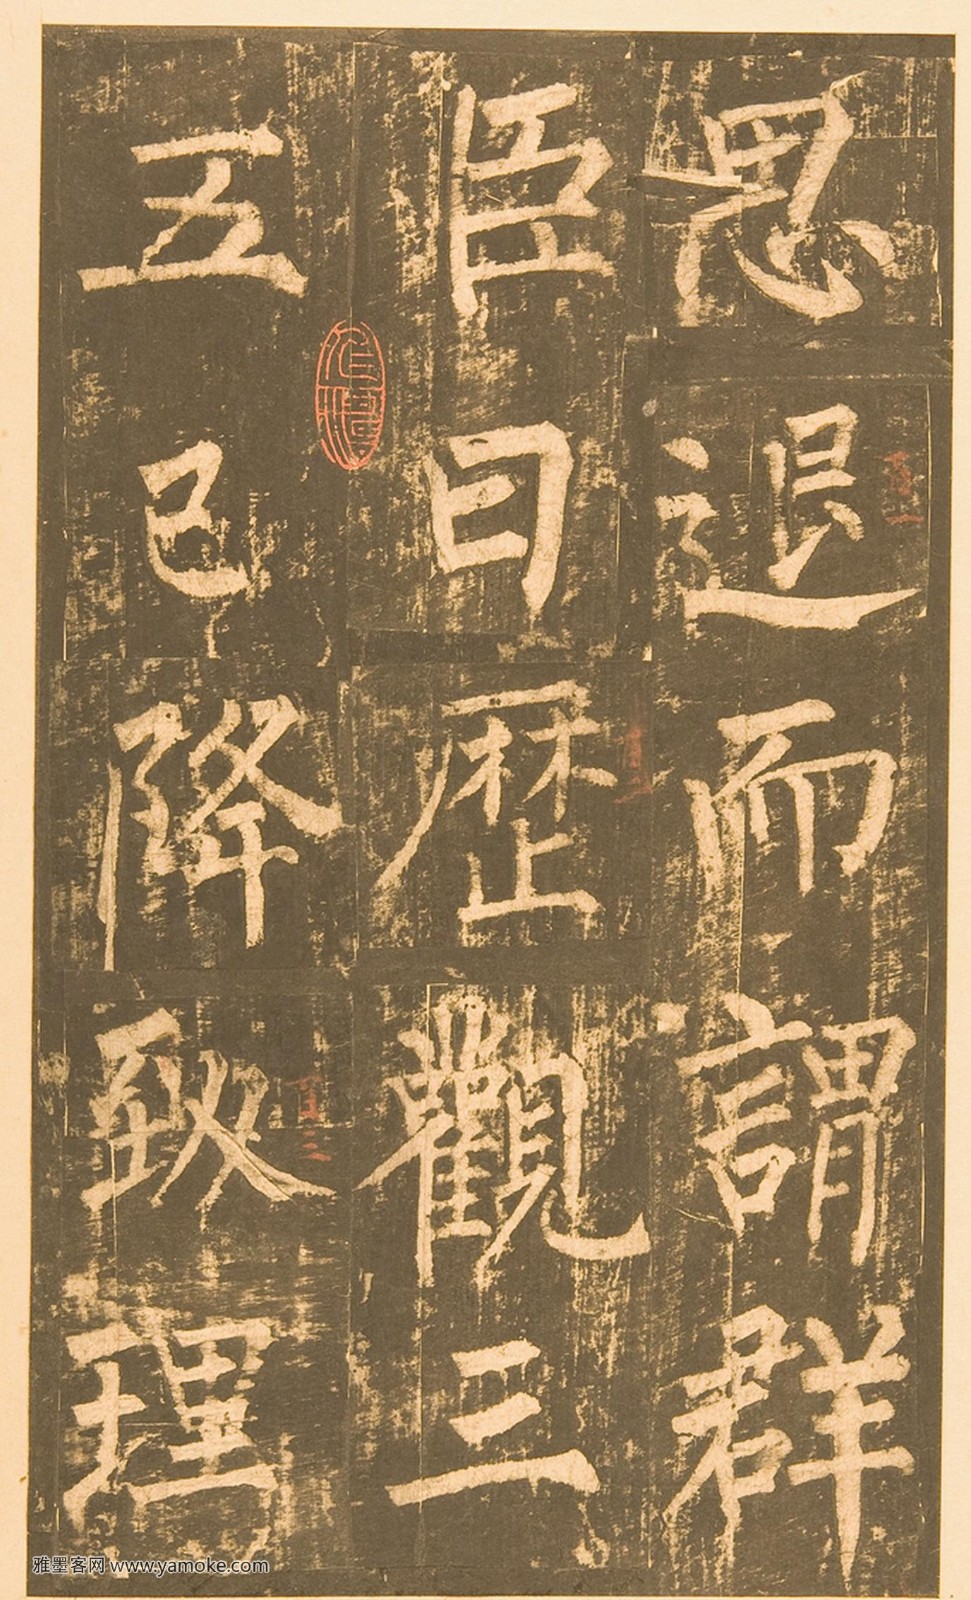 思退而謂群
臣曰歷觀三
五已降致理
雅墨客网 www.yamoke.com